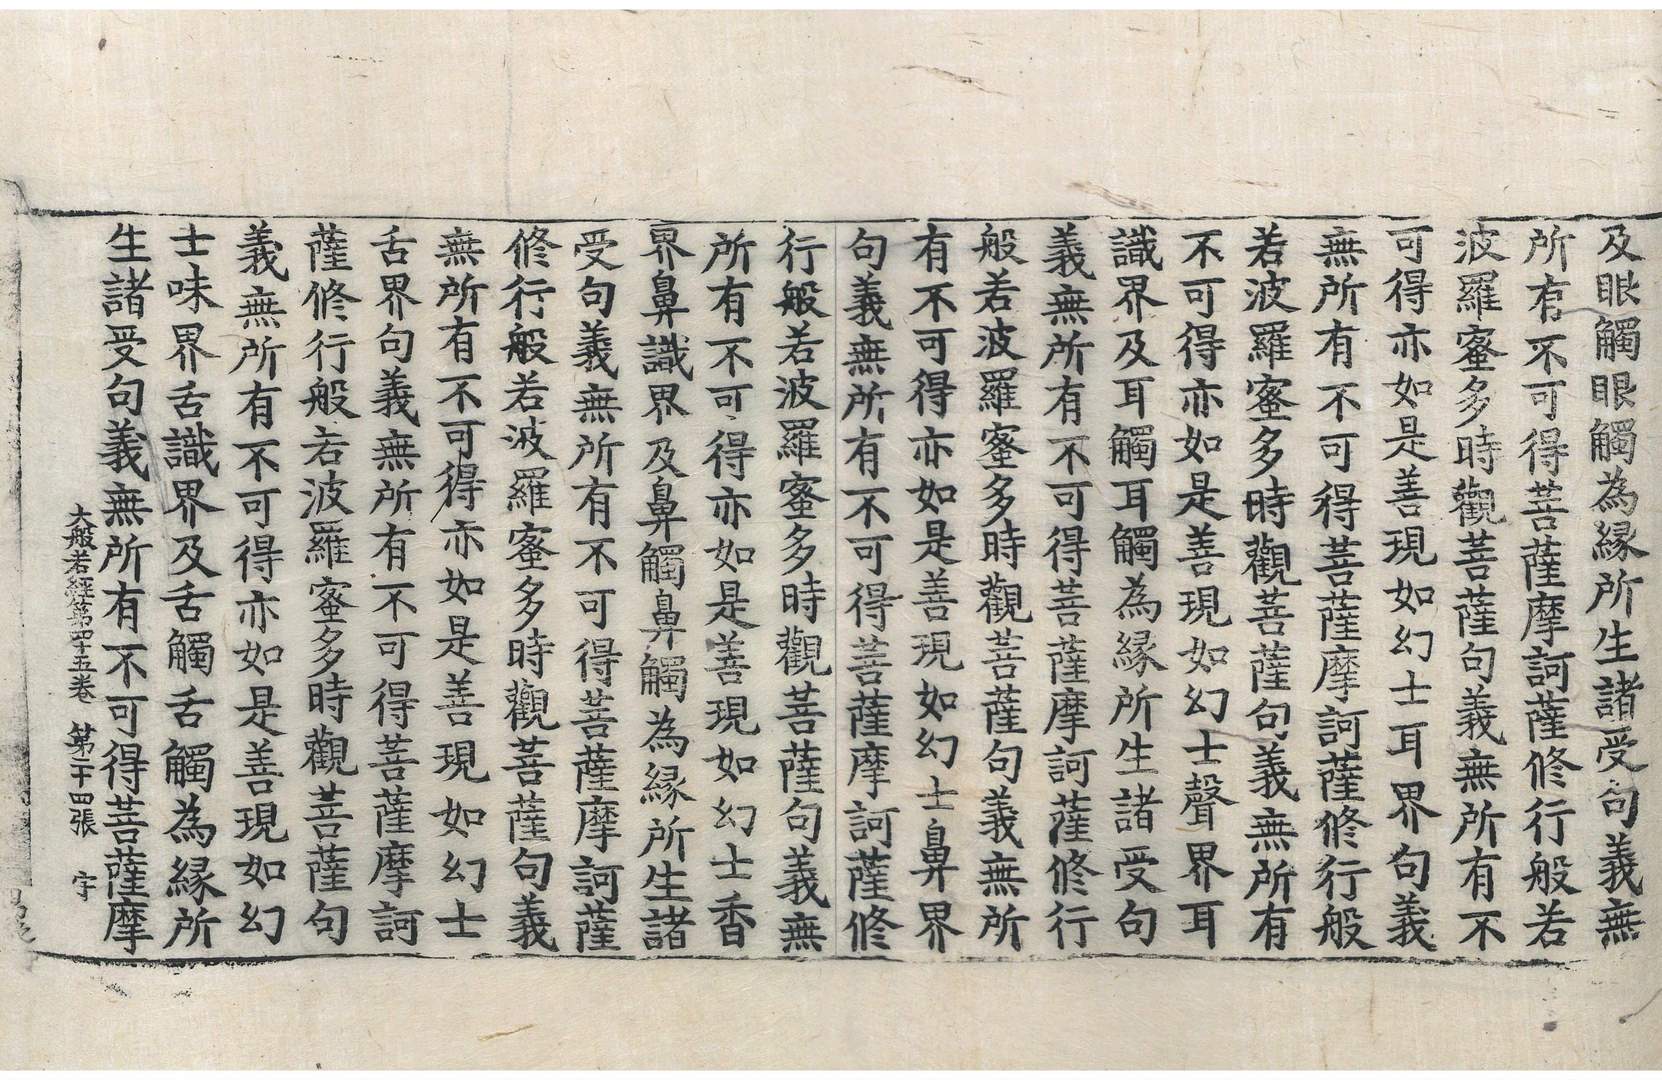 及眼觸眼觸為緣所生諸受句義無
所有不可得菩薩摩訶薩修行般若
波羅蜜多時觀菩薩句義無所有不
可得亦如是善現如幻士耳界句義
無所有不可得菩薩摩訶薩修行般
若波羅蜜多時觀菩薩句義無所有
不可得亦如是善現如幻士聲界耳
識界及耳觸耳觸為緣所生諸受句
義無所有不可得菩薩摩訶薩修行
般若波羅蜜多時觀菩薩句義無所
有不可得亦如是善現如幻士鼻界
句義無所有不可得菩薩摩訶薩修
行般若波羅蜜多時觀菩薩句義無
所有不可得亦如是善現如幻士香
界鼻識界及鼻觸鼻觸為緣所生諸
受句義無所有不可得菩薩摩訶薩
修行般若波羅蜜多時觀菩薩句義
無所有不可得亦如是善現如幻士
舌界句義無所有不可得菩薩摩訶
薩修行般若波羅蜜多時觀菩薩句
義無所有不可得亦如是善現如幻
士味界舌識界及舌觸舌觸為緣所
生諸受句義無所有不可得菩薩摩
大般若經第四十五卷 第二十四張 宇